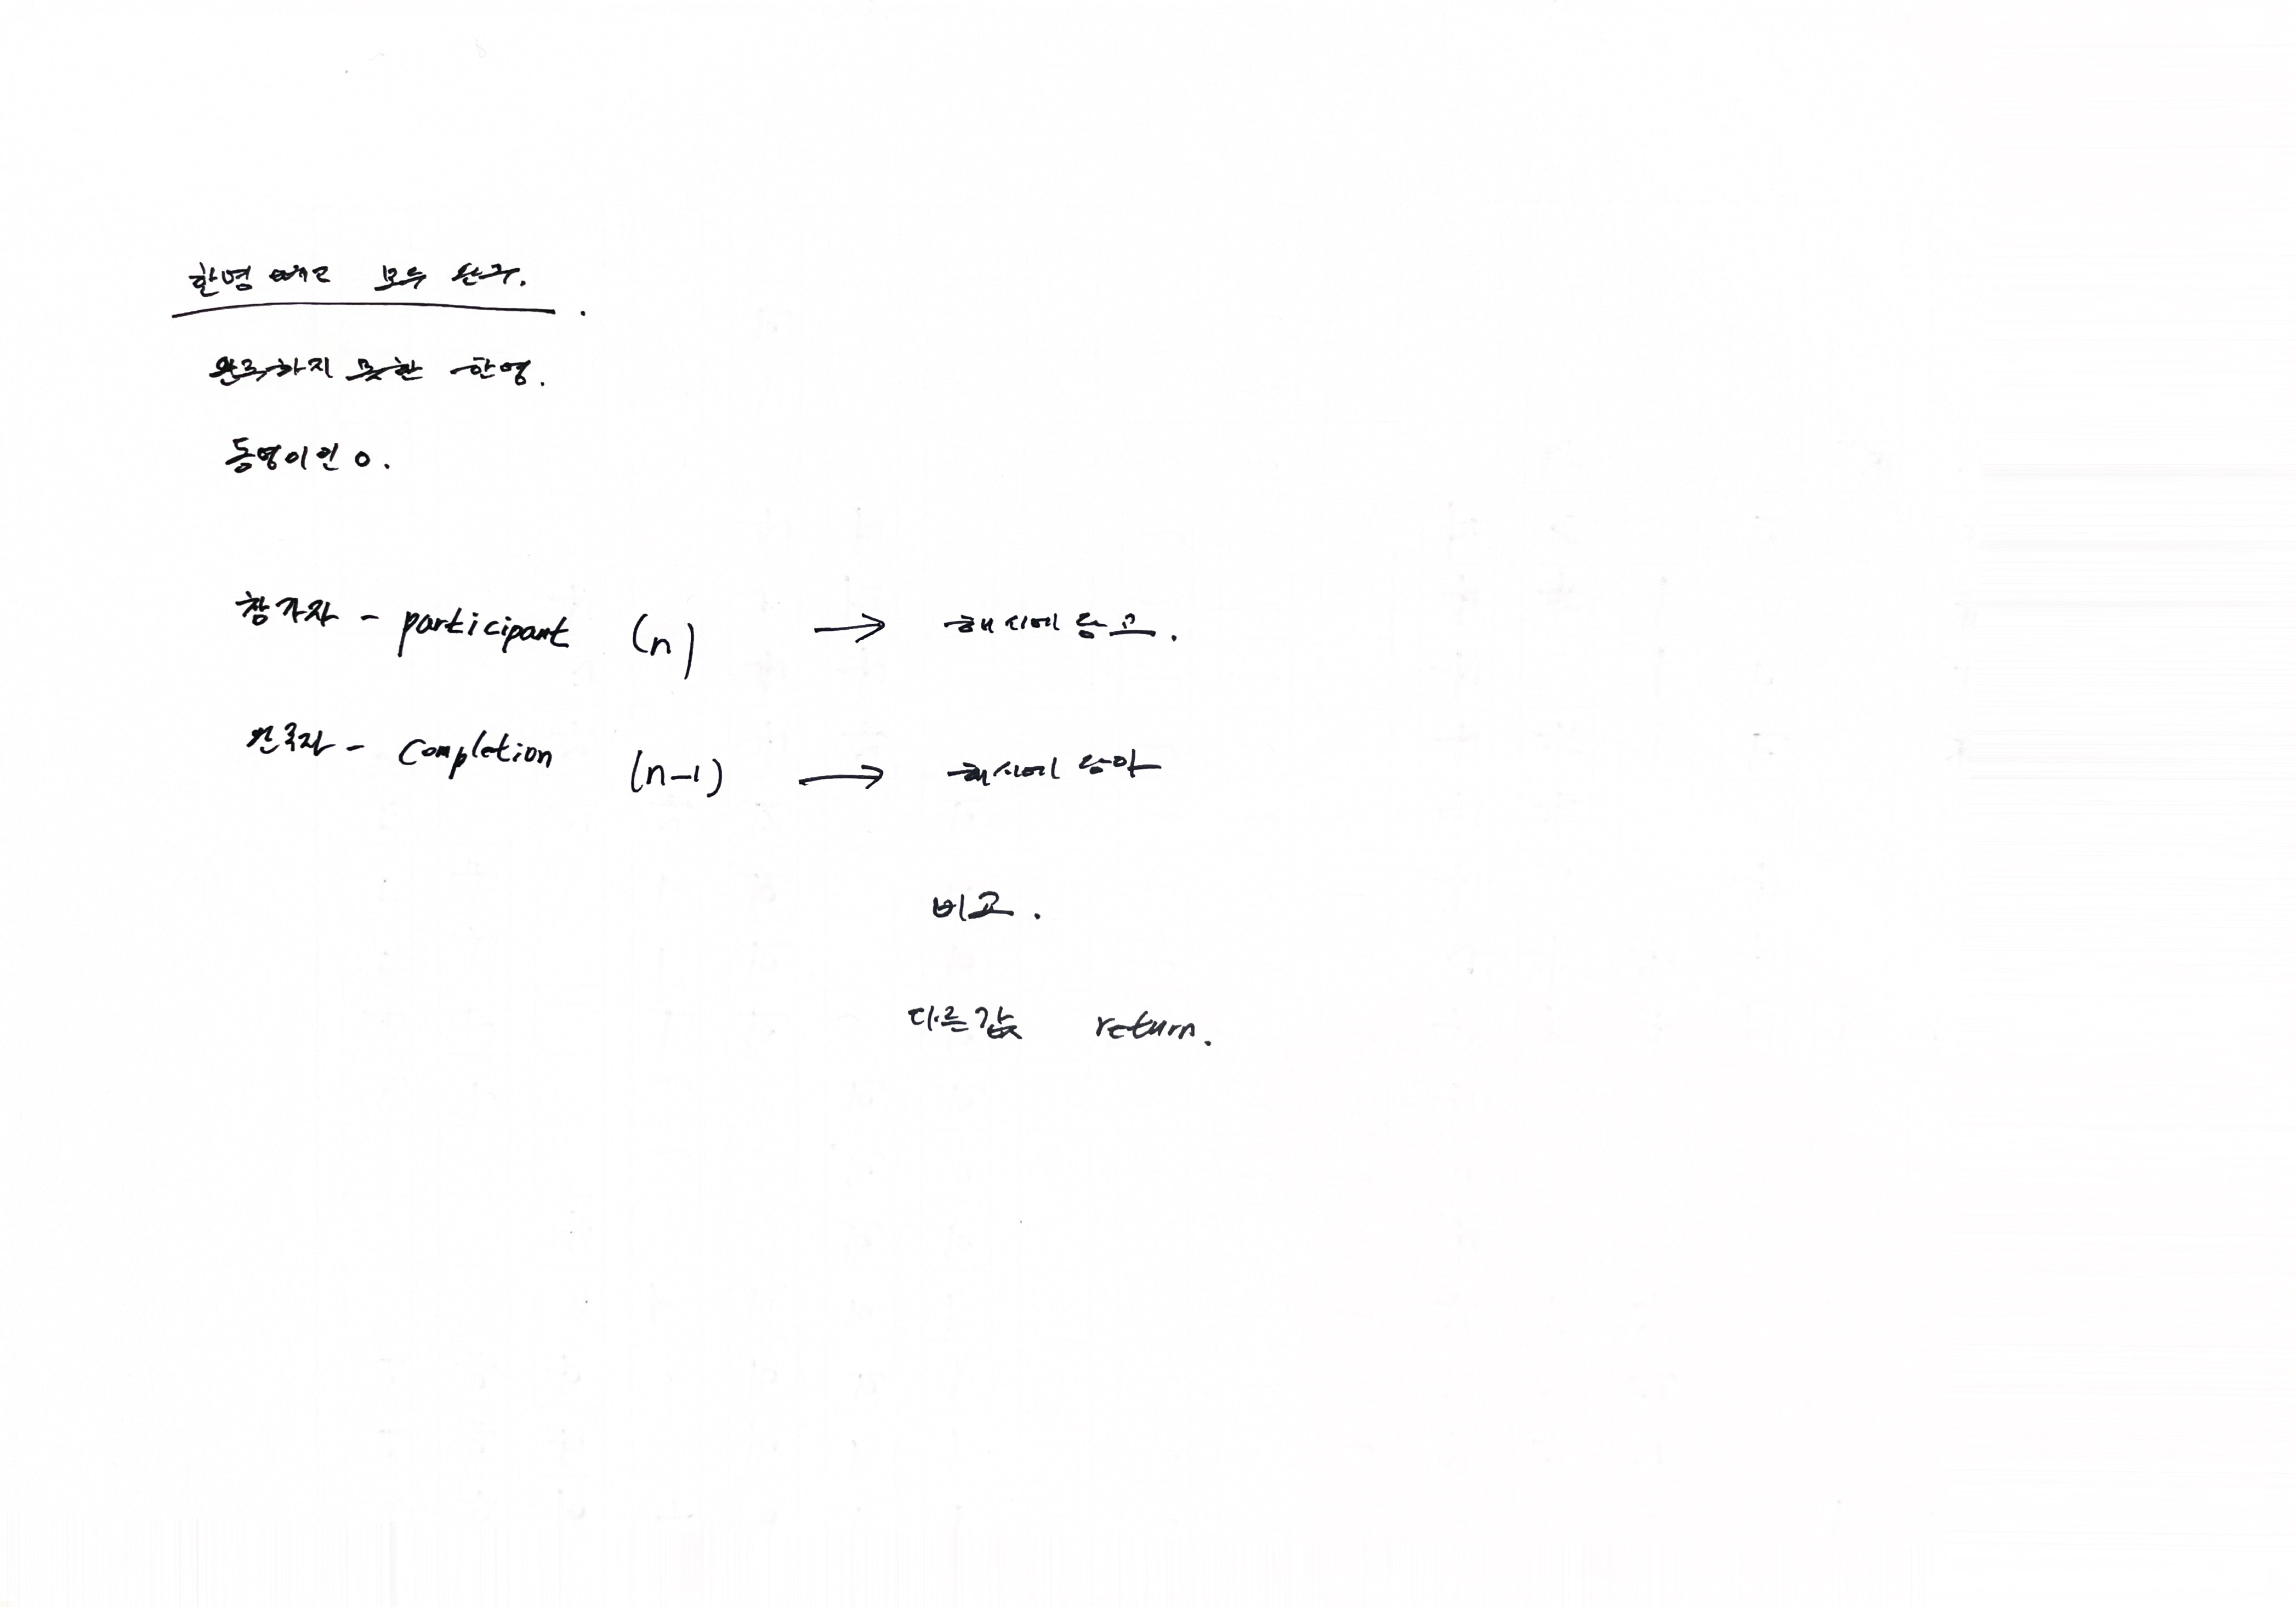 한명 빼고 모두 완주.
완주하지 못한 한명.
동명이인 O.
참가자 - participant (n) → 해시에 담고.
완주자 - completion (n-1) → 해시에 담아
비교.
다른값 return.